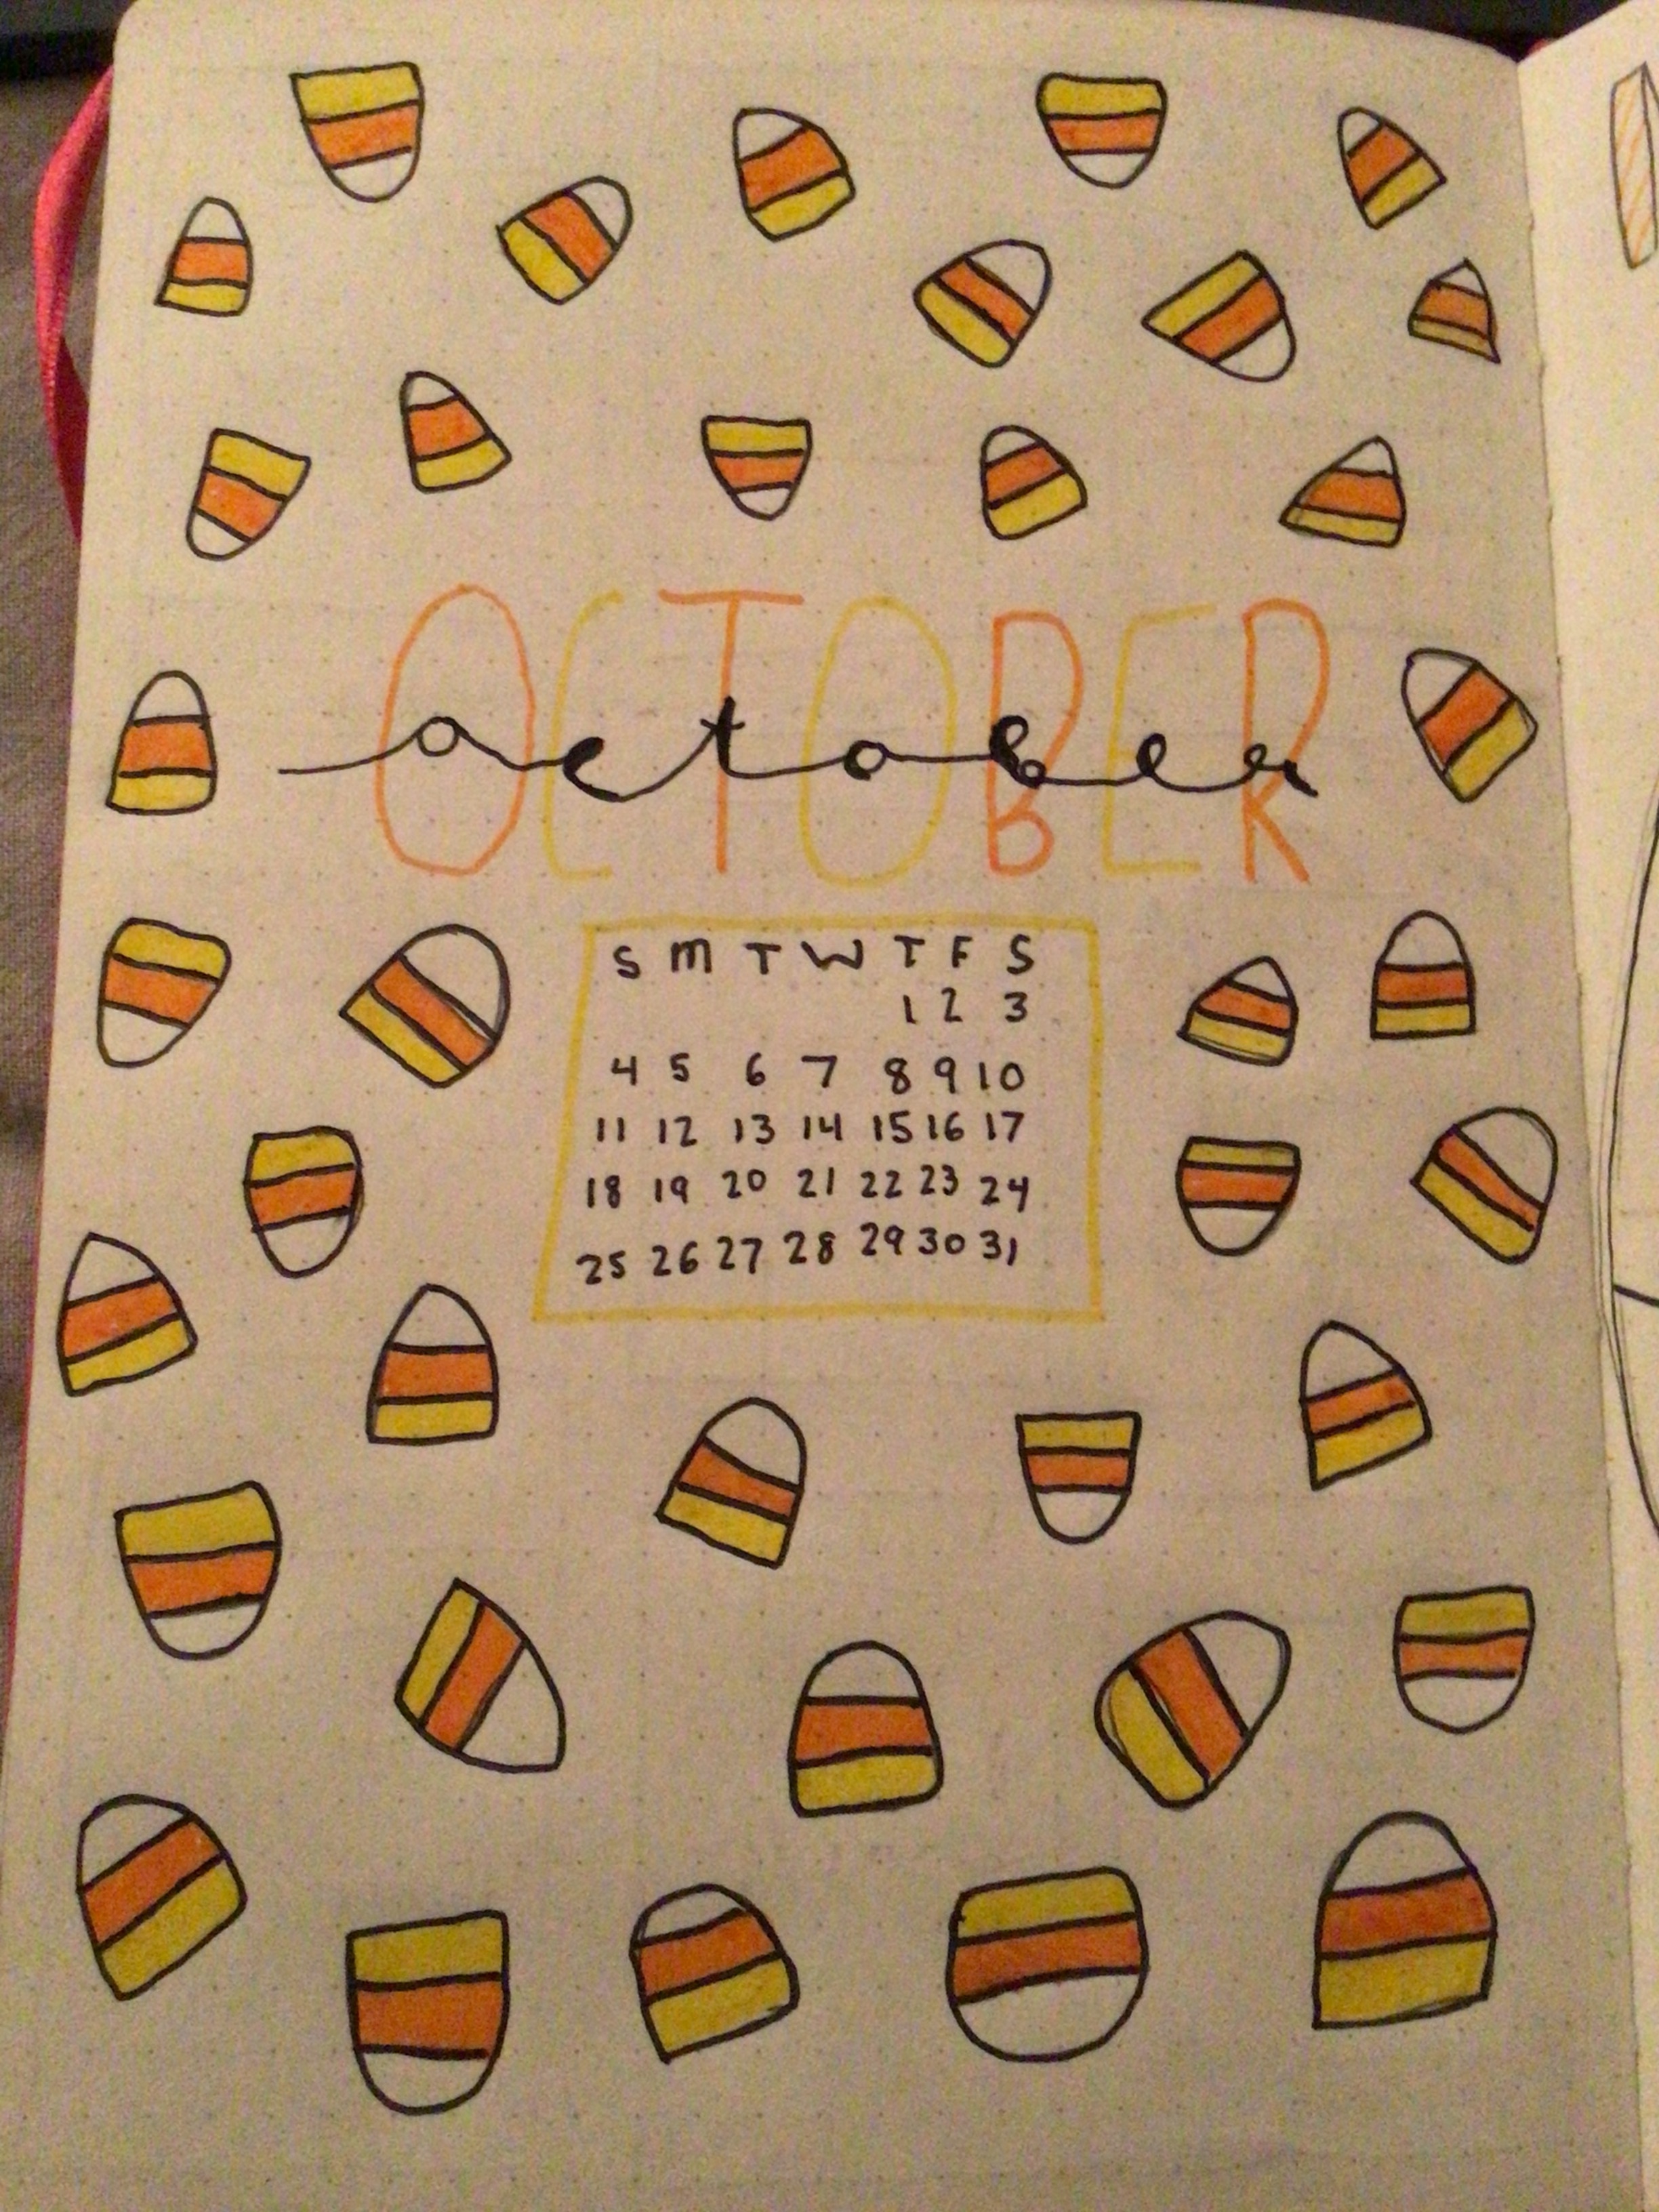 OCTOBER
october
S M T W T F S
1 2 3
4 5 6 7 8 9 10
11 12 13 14 15 16 17
18 19 20 21 22 23 24
25 26 27 28 29 30 31